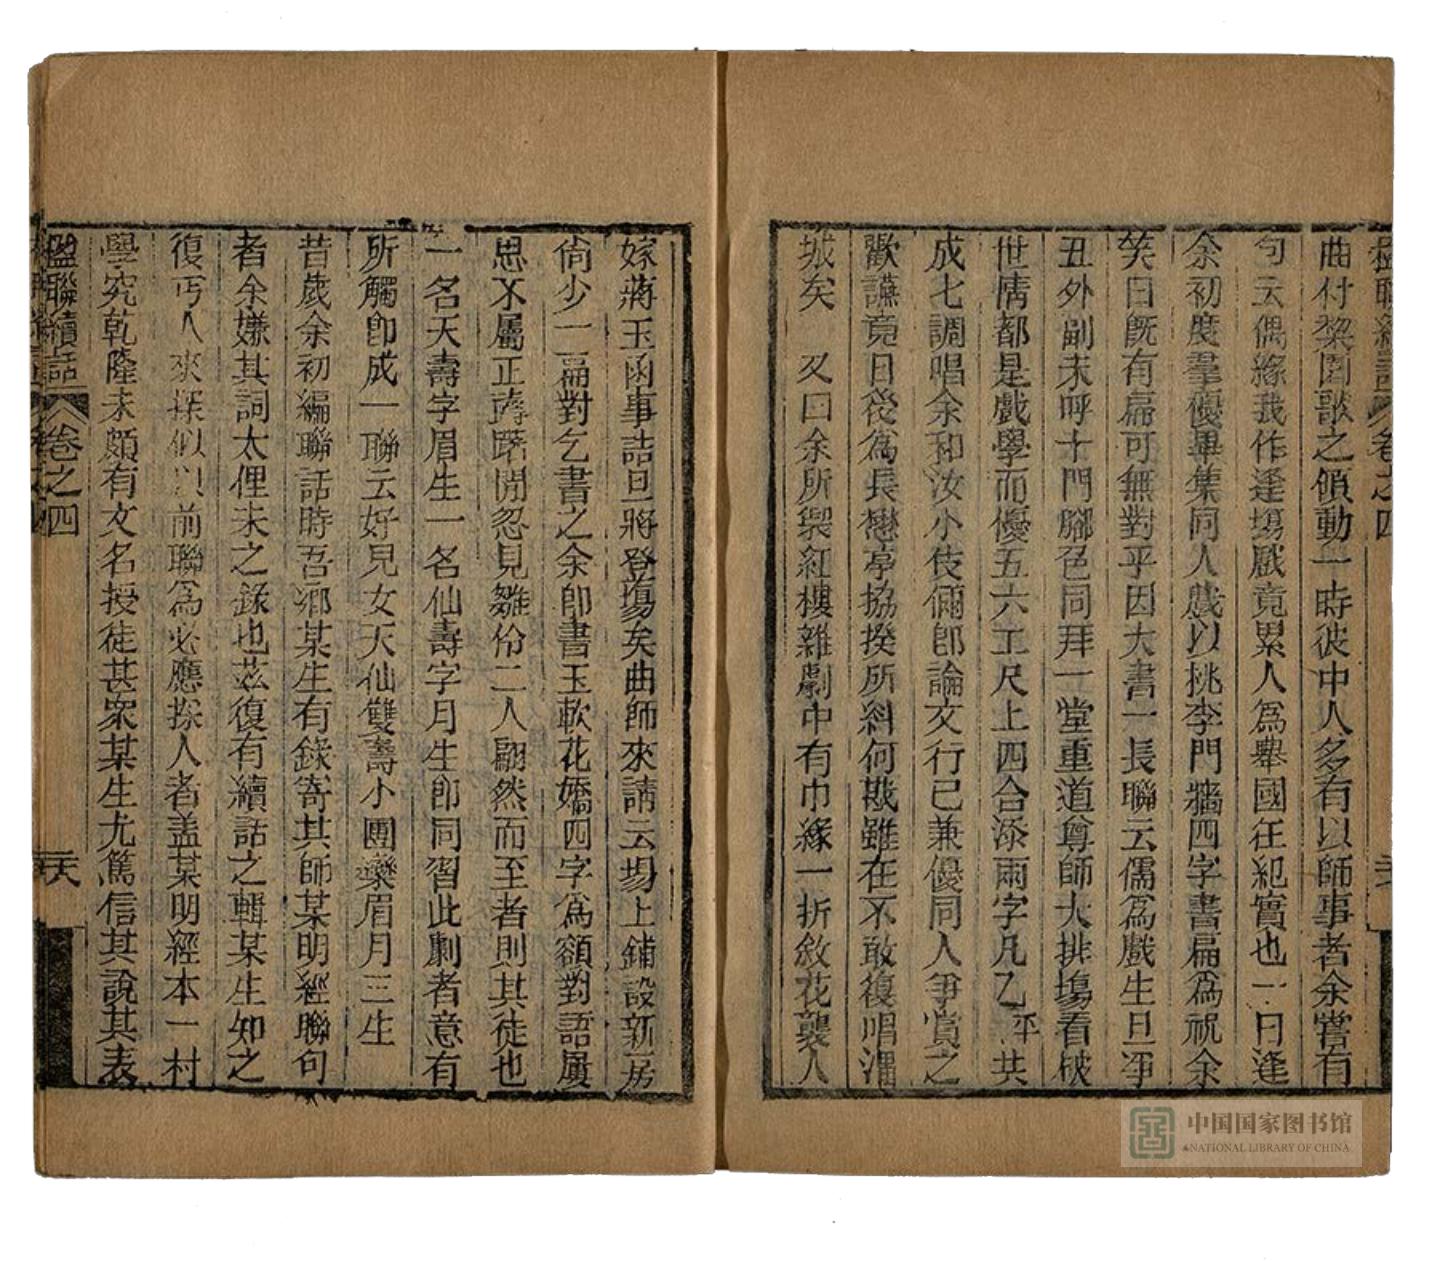 楹聯續話 卷之四
曲付黎園歌之傾動一時彼中人多有以師事者余嘗有
句云偶緣我作逢場戲竟累人為舉國狂紀實也一日逢
余初度羣優畢集同人戲以桃李門牆四字書扁為祝余
笑曰旣有扁可無對乎因大書一長聯云儒為戲生旦凈
丑外副末呼十門腳色同拜一堂重道尊師大排塲看破
世情都是戲學而優五六工尺上四合添兩字凡乙平共
成七調唱余和汝小伎倆卽論文行已兼優同人爭賞之
歡讌竟日後為長懋亭協揆所糾何戡雖在不敢復唱渭
城矣 又曰余所製紅樓雜劇中有巾緣一折敘花襲人
嫁蔣玉函事詰旦將登塲矣曲師來請云場上鋪設新房
尙少一扁對乞書之余卽書玉軟花嬌四字為額對語屬
思不屬正躊躇間忽見雛伶二人翩然而至者則其徒也
一名天壽字眉生一名仙壽字月生卽同習此劇者意有
所觸卽成一聯云好兒女天仙雙壽小團欒眉月三生
昔歲余初編聯話時吾鄉某生有錄寄其師某明經聯句
者余嫌其詞太俚未之錄也茲復有續話之輯某生知之
復丐人來探似以前聯為必應採人者盖某明經本一村
學究乾隆末頗有文名授徒甚眾某生尤篤信其說其表
楹聯續話 卷之四 天
中国国家图书馆
NATIONAL LIBRARY OF CHINA